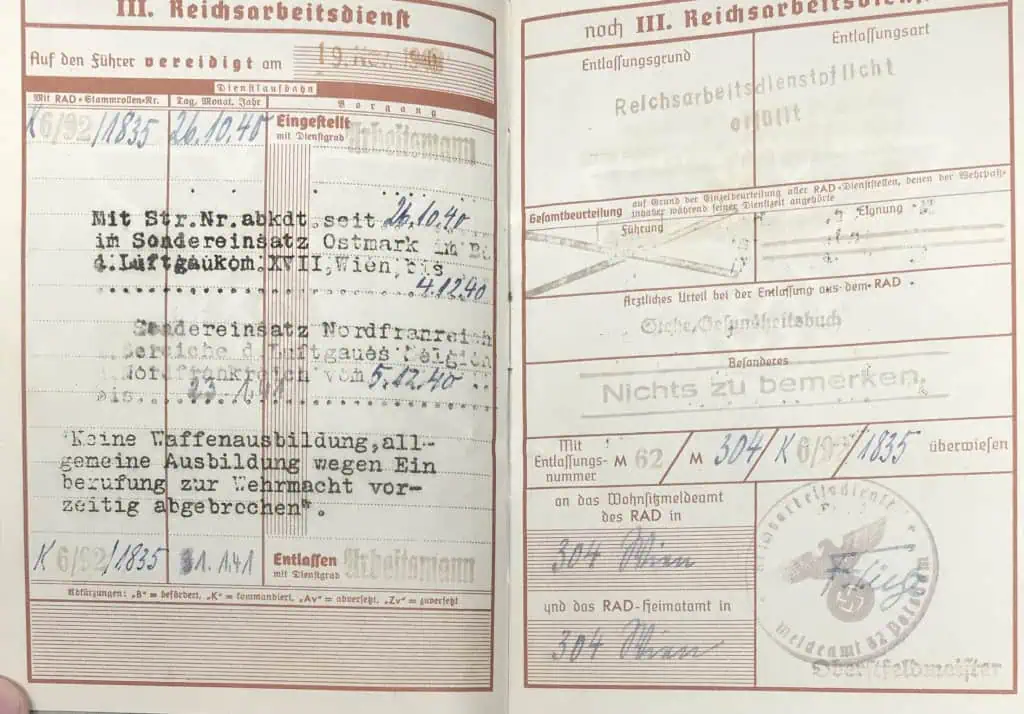 III. Reichsarbeitsdienst
Auf den Führer vereidigt am 19. Nov. 1940
Dienstlaufbahn
Mit RAD-Stammrollen-Nr. Tag, Monat, Jahr Vorgang
K 6/92/1835 26.10.40 Eingestellt
mit Dienstgrad Arbeitsmann
Mit Str.Nr.abkdt. seit 26.10.40
im Sondereinsatz Ostmark im
d.Luftgaukom.XVII,Wien,bis
4.12.40
Sondereinsatz Nordfranreich
Bereiche d.Luftgaues Belgien
Nordfrankreich vom 5.12.40
bis 23.1.41
"Keine Waffenausbildung,all-
gemeine Ausbildung wegen Ein
berufung zur Wehrmacht vor-
zeitig abgebrochen".
K 6/92/1835 31.1.41 Entlassen
mit Dienstgrad Arbeitsmann
Abkürzungen: „B" = befördert, „K" = kommandiert, „Av" = abversetzt, „Zv" = zuversetzt
noch III. Reichsarbeitsdienst
Entlassungsgrund Entlassungsart
Reichsarbeitsdienstpflicht
erfüllt
Gesamtbeurteilung auf Grund der Einzelbeurteilung aller RAD-Dienststellen, denen der Wehrpaß-
inhaber während seiner Dienstzeit angehörte
Führung Eignung
Ärztliches Urteil bei der Entlassung aus dem RAD
Siehe Gesundheitsbuch
Besonderes
Nichts zu bemerken.
Mit
Entlassungs-
nummer M 62 / M 304 / K 6/92/1835 überwiesen
an das Wohnsitzmeldeamt
des RAD in
304 Wien
und das RAD-Heimatamt in
304 Wien
Meldeamt 62 Potsdam
Oberstfeldmeister